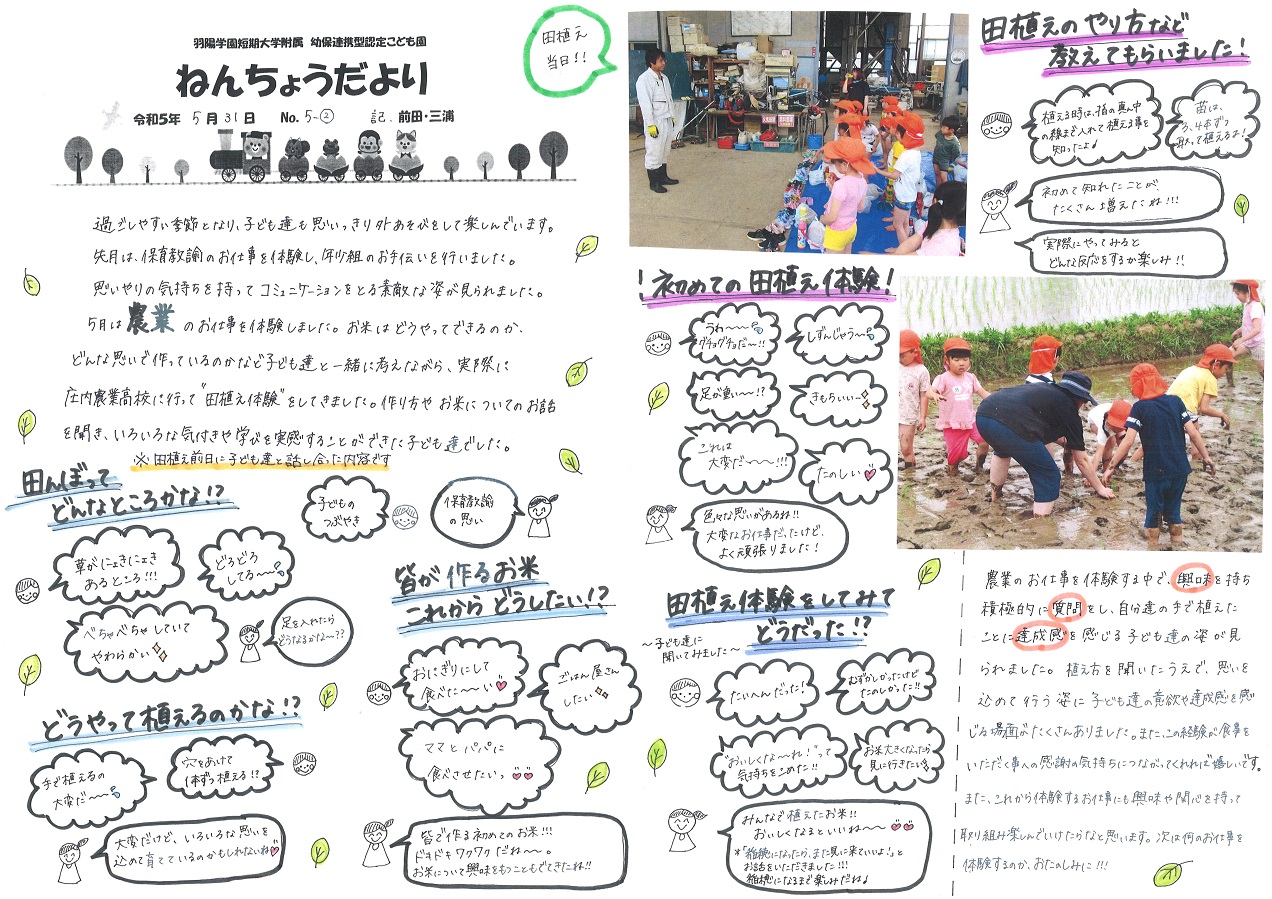 羽陽学園短期大学附属 幼保連携型認定こども園
ねんちょうだより
令和5年 5月31日 No. 5-② 記. 前田・三浦
過ごしやすい季節となり、子ども達も思いっきり外あそびをして楽しんでいます。
先月は、保育教諭のお仕事を体験し、年少組のお手伝いを行いました。
思いやりの気持ちを持ってコミュニケーションをとる素敵な姿が見られました。
5月は農業のお仕事を体験しました。お米はどうやってできるのか、
どんな思いで作っているのかなど子ども達と一緒に考えながら、実際に
庄内農業高校に行って"田植え体験"をしてきました。作り方やお米についてのお話
を聞き、いろいろな気付きや学びを実感することができた子ども達でした。
※田植え前日に子ども達と話し合った内容です
田んぼって
どんなところかな!?
子どもの
つぶやき
保育教諭
の思い
草がにょきにょき
あるところ!!!
どろどろ
してる〜〜
べちゃべちゃしていて
やわらかい
足を入れたら
どうなるかな〜??
どうやって植えるのかな!?
手で植えるの
大変だ〜〜
穴をあけて
1本ずつ植える!?
大変だけど、いろいろな思いを
込めて育てているのかもしれないね♡
皆が作るお米
これからどうしたい!?
おにぎりにして
食べた〜〜い♡
ごはん屋さん
したい
ママとパパに
食べさせたいっ♡♡
皆で作る初めてのお米!!!
ドキドキワクワクだね〜〜。
お米について興味をもつこともできたね!!
田植え
当日!!
田植えのやり方など
教えてもらいました!
植える時は、指の真ん中
の線まで入れて植える事を
知ったよ♪
苗は、
3、4本ずつ
取って植えるよ!
初めて知れたことが、
たくさん増えたね!!!
実際にやってみると
どんな反応をするか楽しみ!!
!初めての田植え体験!
うわ〜〜
グチョグチョだ〜!!
しずんじゃう〜
足が重い〜〜!?
きもちいい〜
これは
大変だ〜〜!!!
たのしい♡
色々な思いがあるね!!
大変なお仕事だったけど、
よく頑張りました!
田植え体験をしてみて
どうだった!?
〜子ども達に
聞いてみました〜
たいへんだった!
むずかしかったけど
たのしかった!!
"おいしくな〜れ!"って
気持ちをこめた!!
お米大きくなったら
見に行きたい
みんなで植えたお米!!
おいしくなるといいね〜〜♡♡
*「稲穂になったら、また見に来ていいよ!」と
お話をいただきました!!!
稲穂になるまで楽しみだね♪
農業のお仕事を体験する中で、興味を持ち
積極的に質問をし、自分達の手で植えた
ことに達成感を感じる子ども達の姿が見
られました。植え方を聞いたうえで、思いを
込めて行う姿に子ども達の意欲や達成感を感
じる場面がたくさんありました。また、この経験が食事を
いただく事への感謝の気持ちにつながってくれれば嬉しいです。
また、これから体験するお仕事にも興味や関心を持って
取り組み楽しんでいけたらなと思います。次は何のお仕事を
体験するのか、おたのしみに!!!